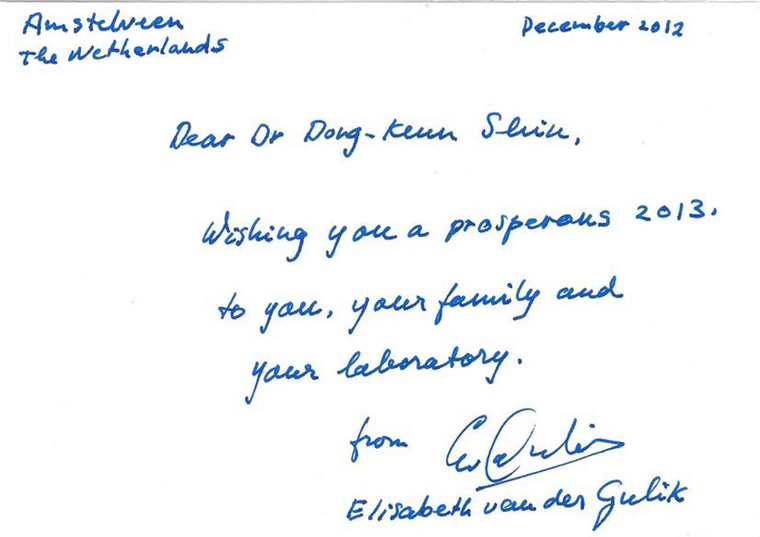 Amstelveen
The Netherlands
December 2012
Dear Dr Dong-Keun Shin,
Wishing you a prosperous 2013.
to you, your family and
your laboratory.
from
Elisabeth van der Gulik